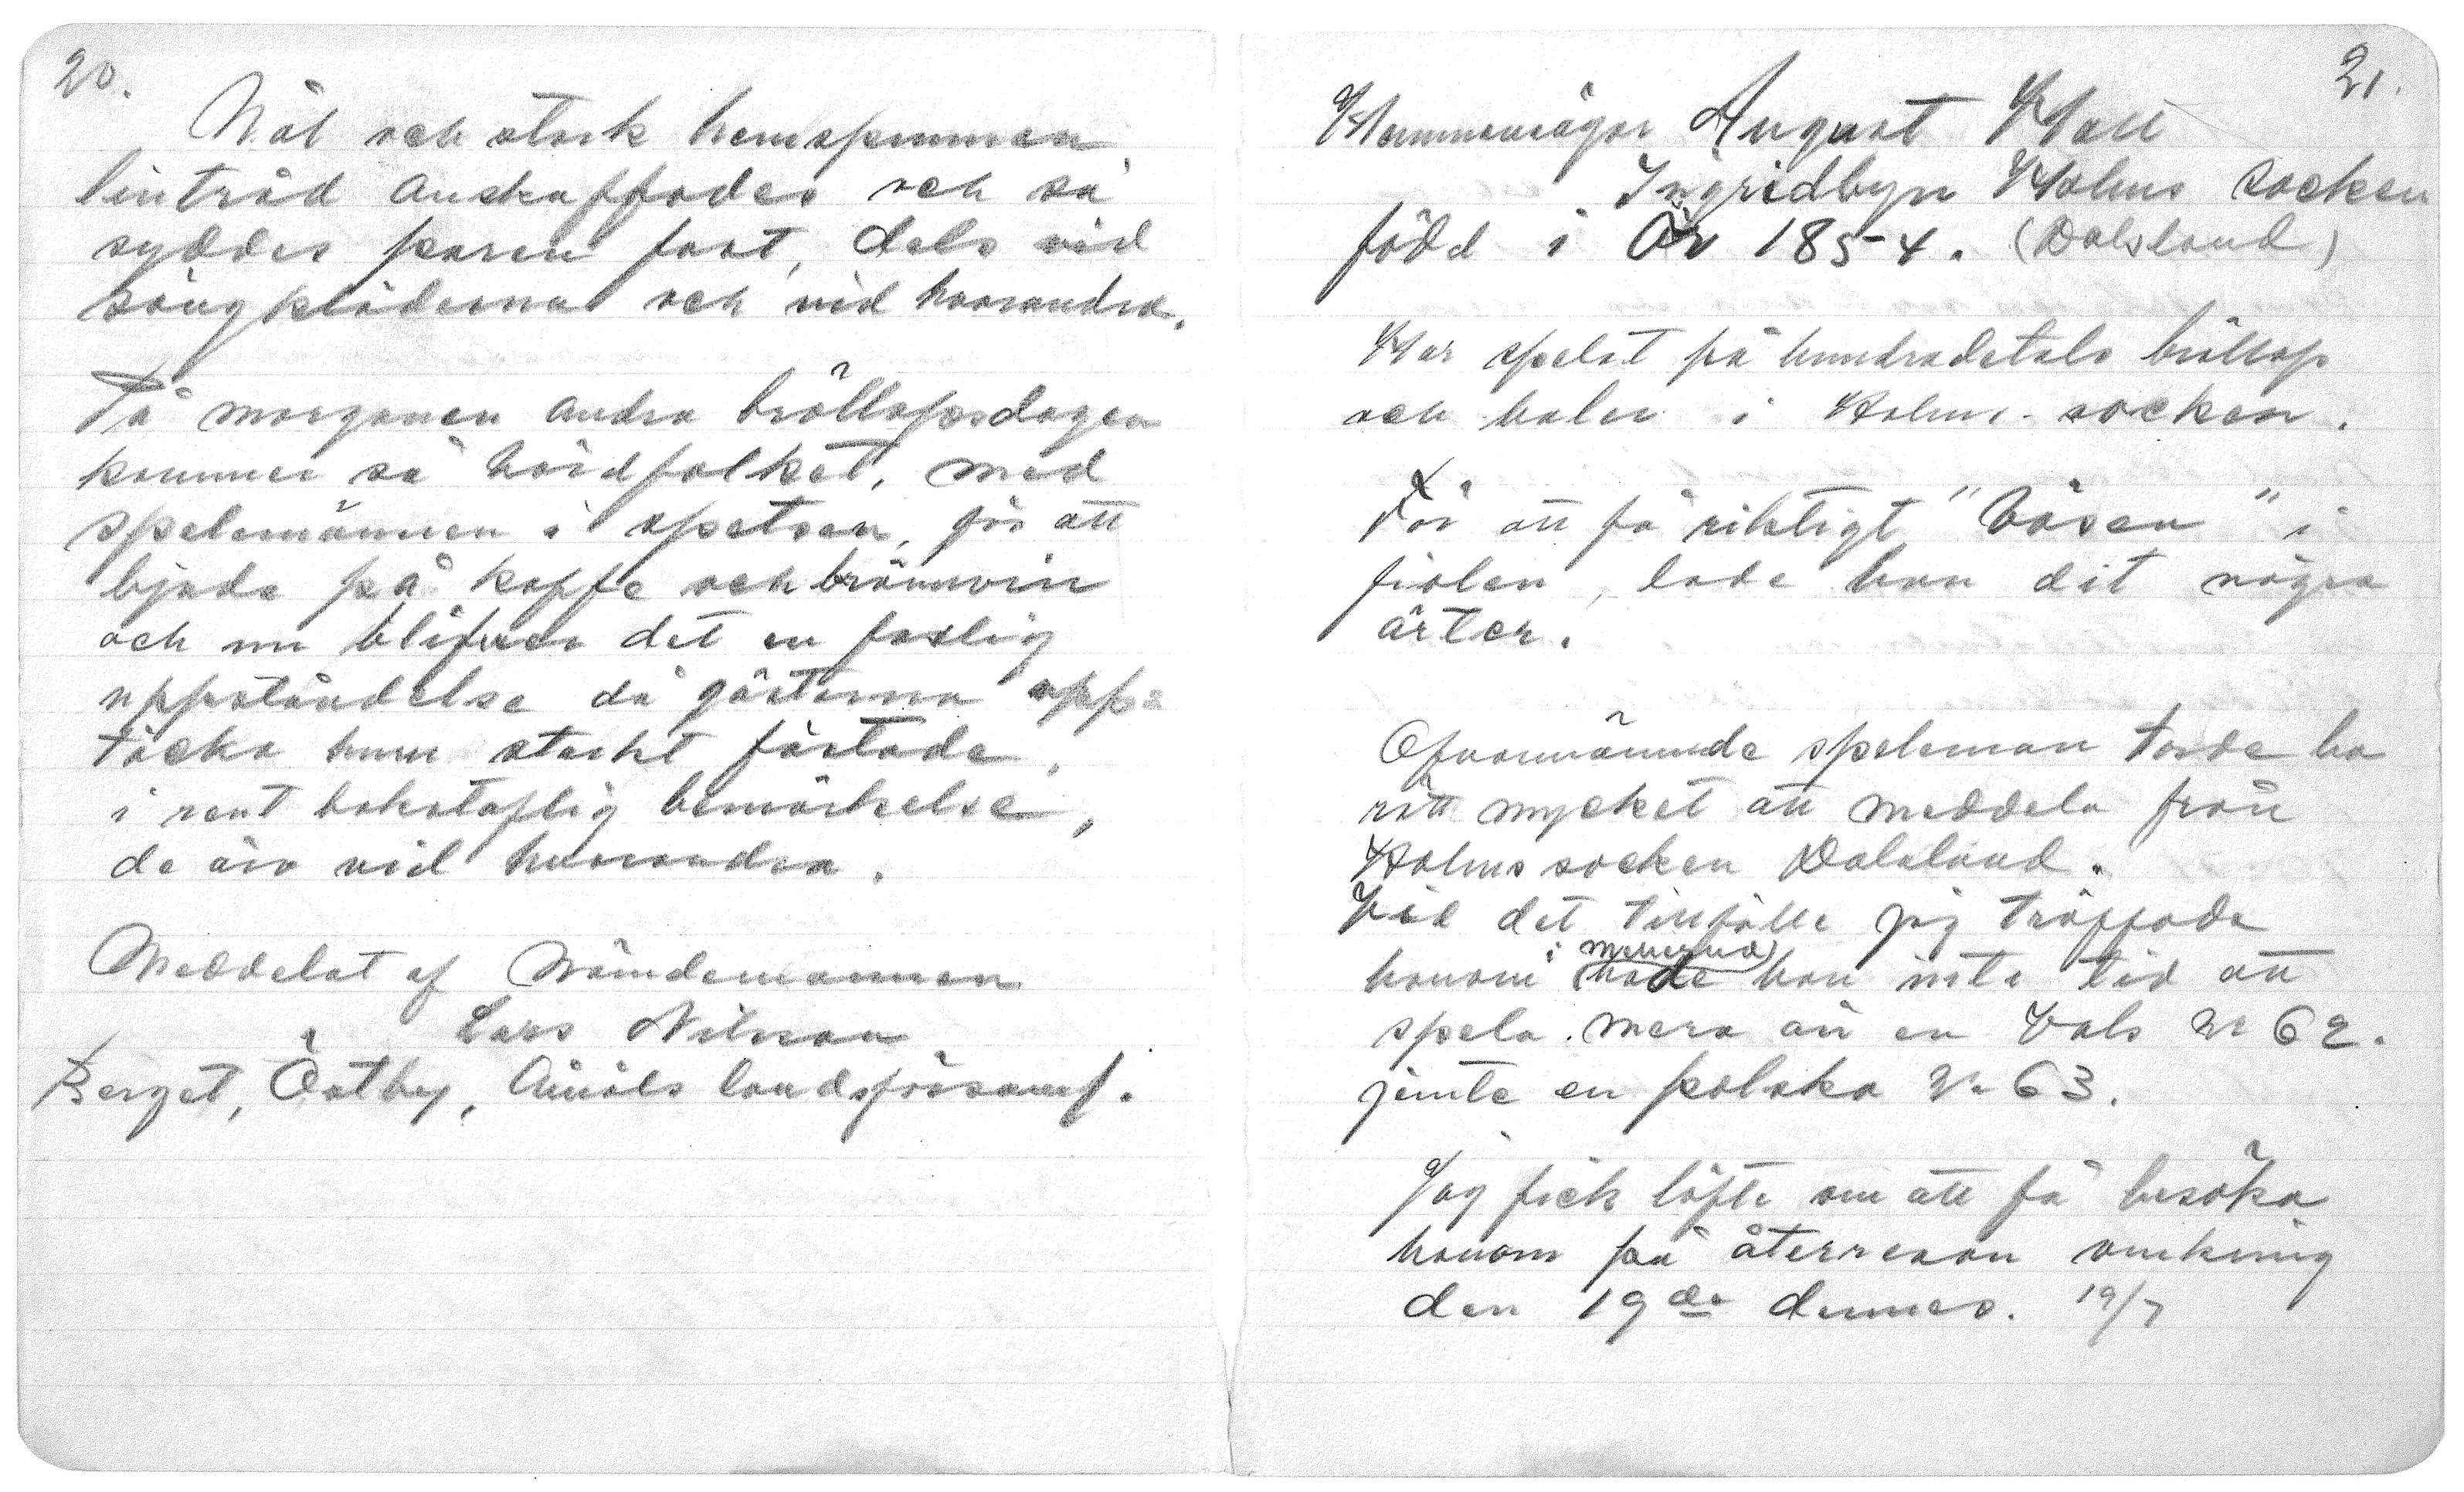 20.
Nål och stark hemspunnen
lintråd anskaffades och så
syddes paren fast, dels vid
sängkläderna och vid hvarandra.
På morgonen andra bröllopsdagen
kommer så värdfolket, med
spelemännen i spetsen, för att
bjuda på kaffe och brännvin
och nu blifver det en faslig
uppståndelse då gästerna upp-
täcka huru starkt fästade,
i rent bokstaflig bemärkelse,
de äro vid hvarandra.
Meddelat af Nämdemannen
Lars Nilsson
Berget, Östby, Åmåls landsförsaml.
21.
Hemmansägar August Hall
Ingridbyn Holms socken
född i År 1854. (Dalsland)
Har spelat på hundradetals bröllop
och baler i Holms-socken.
För att få riktigt "väsen" i
fiolen, lade han dit några
ärter.
Ofvannämnde speleman torde ha
rätt mycket att meddela från
Holms socken Dalsland.
Vid det tillfälle jag träffade
honom i Mellerud hade han inte tid att
spela mera än en Vals No 62.
jämte en polska No 63.
Jag fick löfte om att få besöka
honom på återresan omkring
den 19de dennes. 19/7